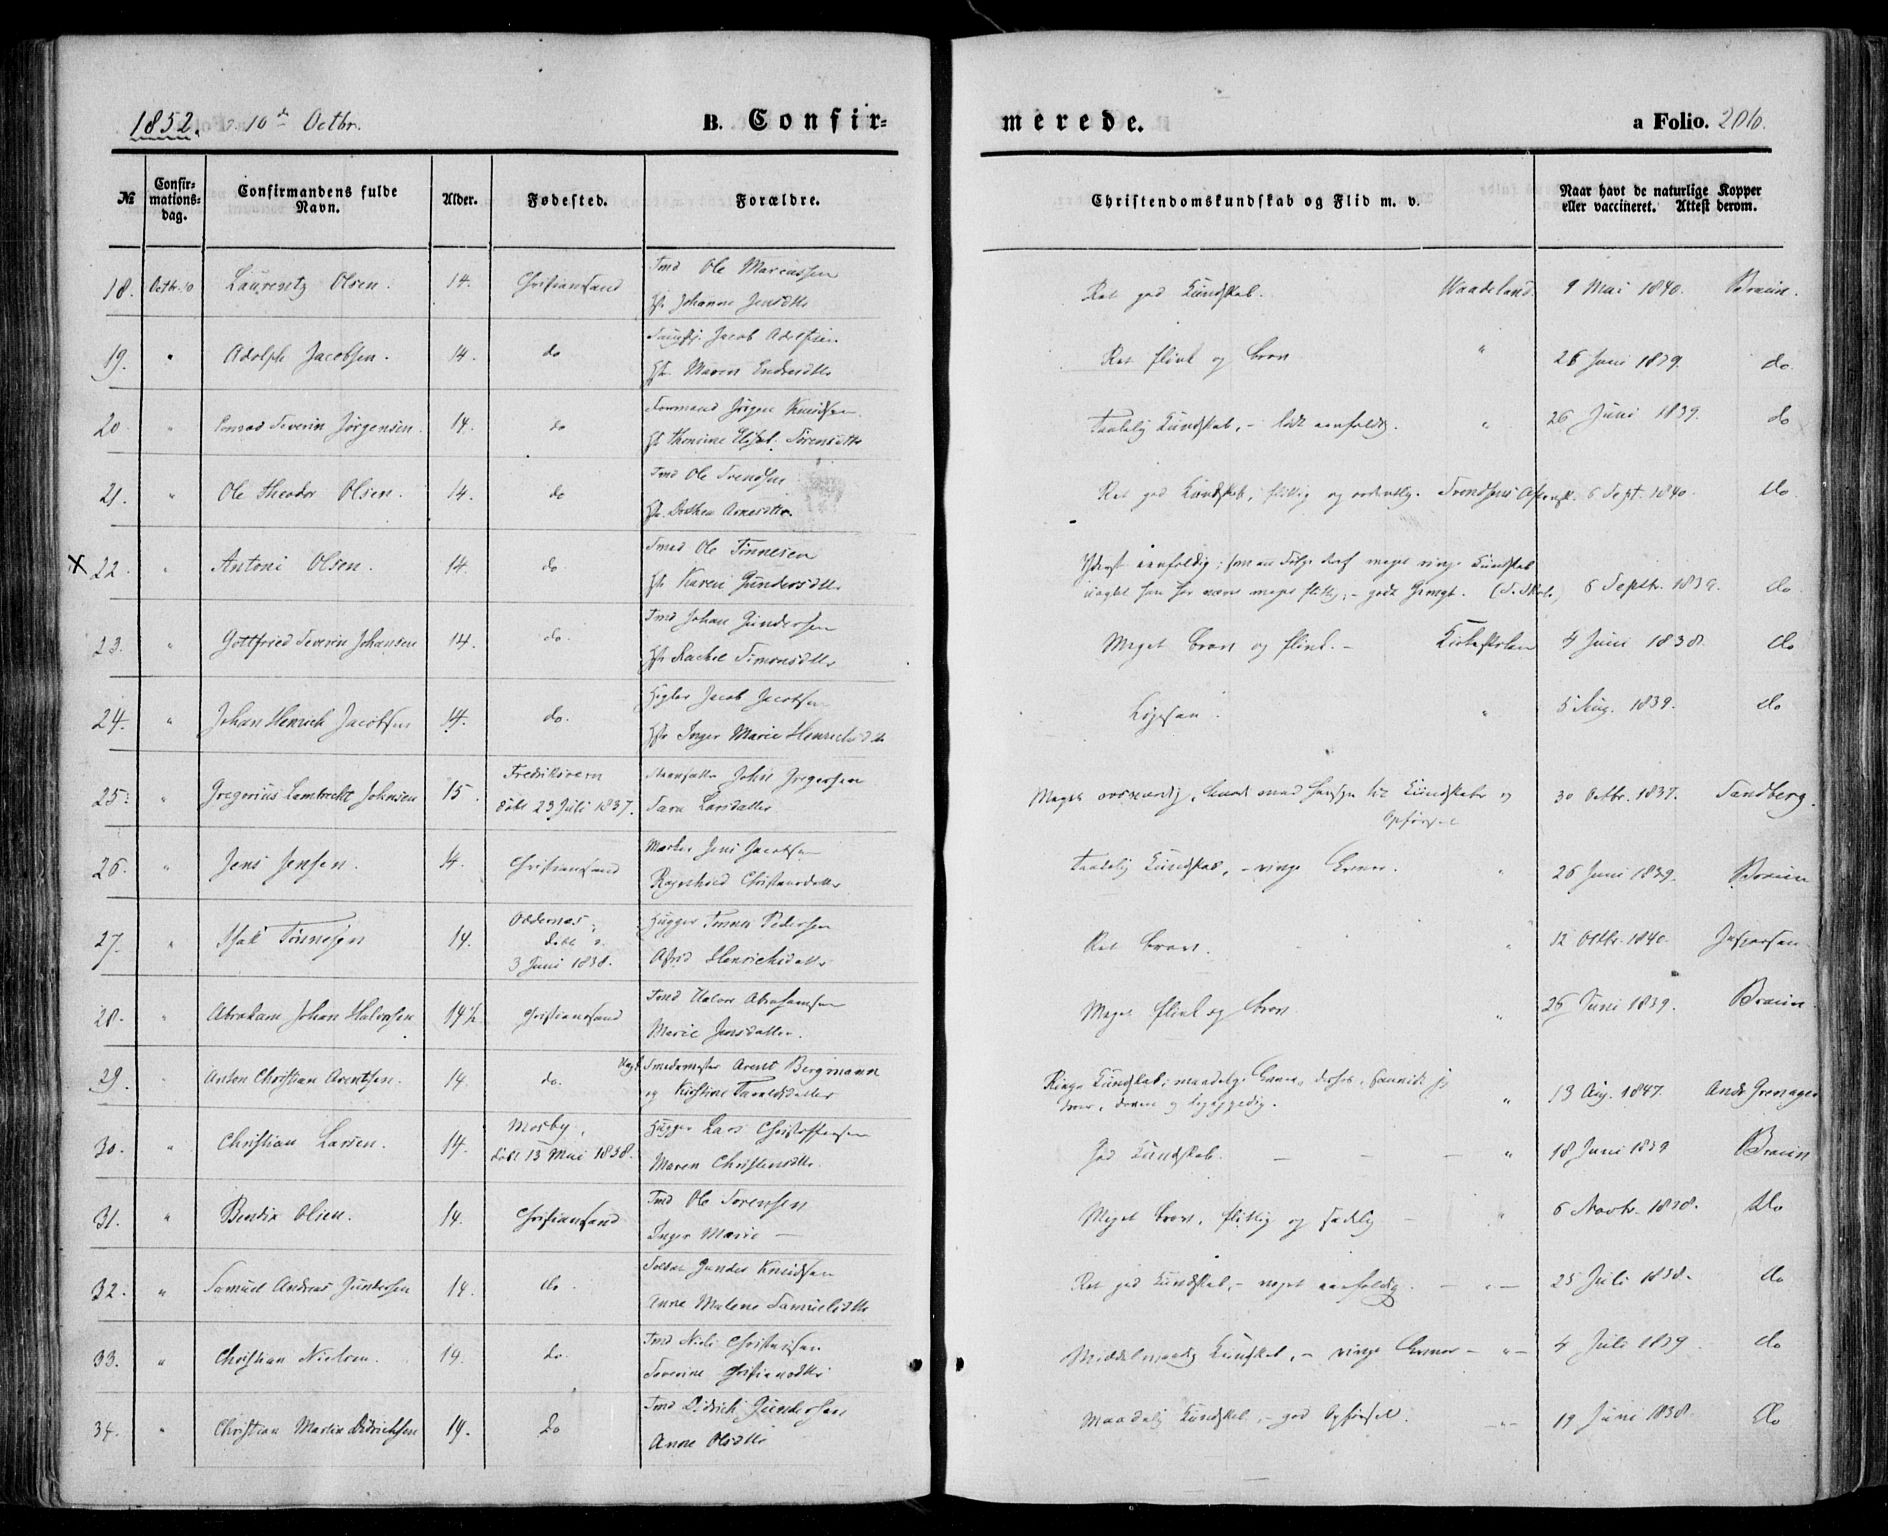 1852. 10de Octbr.
B. Confir=
merede.
a Folio. 206.
№
Confir=
mations=
dag.
Confirmandens fulde
Navn.
Alder.
Fødested.
Forældre.
Christendomskundskab og Flid m. v.
Naar havt de naturlige Kopper
eller vaccineret. Attest derom.
18. Octbr. 10 Laurentz Olsen. 14. Christiansand
Tmd Ole Marcussen
Johanne Jensdttr
Ret god Kundskab. Waadeland. 9 Mai 1840. Braun.
19. " Adolph Jacobsen. 14. do
Jacob Adolfsen
Maren Endresdttr
Ret flink og brav " 26 Juni 1839. do.
20. " Conrad Severin Jørgensen. 14. do
Formand Jørgen Knudsen.
Thomine Elisb. Sørensdttr
Taalelig Kundskab, – lidt eenfoldig. " 26 Juni 1839. do
21. " Ole Theodor Olsen. 14. do
Tmd Ole Svendsen
Dorthea Arnesdttr.
Ret god Kundskab, flittig og ordentlig. 6 Sept. 1840. do.
X 22. " Antoni Olsen. 14. do.
Tmd Ole Tønnesen
Karen Gundersdttr
Yderst eenfoldig; som en Følge deraf meget ringe Kundskab
uagtet han har været meget flittig; – gode 6 Septbr. 1839. do.
23. " Gottfried Severin Johansen 14. do.
Tmd Johan Gundersen
Rachel Simonsdttr
Meget brav og flink. – Kirkeskolen 4 Juni 1838. do
24. " Johan Henrich Jacobsen 14. do.
Jacob Jacobsen
Inger Marie Henrichsdttr
Ligesaa. " 5 Aug. 1839. do
25. " Gregorius Lambrecht Johnsen 15.
Fredriksværn
døbt 23 Juli 1837.
John Gregersen
Sara Larsdatter
Meget roesværdig, baade med Hensyn til Kundskaber og
Opførsel
30 Octbr. 1837. Sandberg.
26. " Jens Jensen. 14. Christiansand
Jens Jacobsen
Ragnhild Christensdatter
Taalelig Kundskab, – ringe Evner. " 26 Juni 1839. Braun
27. " Isak Tønnesen 14.
Oddernes;
døbt d.
3 Juni 1838.
Hugger Tønnes Pedersen
Astrid Henrichsdatter
Ret brav. " 12 Octbr. 1840. Jespersen
28. " Abraham Johan Halvorsen 14½ Christiansand
Tmd Halvor Abrahamsen
Marie Jensdatter.
Meget flink og brav " 26 Juni 1839. Braun.
29. " Anton Christian Arentsen. 14. do.
Smedemester Arent Bergmann
og Kirstine Taraldsdatter
Ringe Kundskab; maadelige Evner,
doven og ligegyldig. " 13 Aug. 1847. And. Grønager
30. " Christian Larsen. 14.
Mosby,
døbt 13 Mai 1838.
Hugger Lars Christophersen
Maren Christensdttr.
God Kundskab. – – – " 18 Juni 1839 Braun
31. " Bendix Olsen. 14. Christiansand
Tmd Ole Sørensen
Inger Marie –
Meget brav, flittig og sædelig – " 6 Novbr. 1838. do
32. " Samuel Andreas Gundersen 14. do.
Soldat Gunder Knudsen
Anne Malene Samuelsdttr
Ret god Kundskab, – noget eenfoldig. – " – 25 Juli 1838. do
33. " Christian Nielsen. 14. do.
Tmd Niels Christensen
Severine Christiansdttr
Middelmaadig Kundskab, – ringe Evner – " – 4 Juli 1839. do
34. " Christian Martin Didrichsen 14. do
Tmd Didrich Gundersen
Anne Olsdttr
Maadelig Kundskab, – god Opførsel. – " – 19 Juni 1838. do